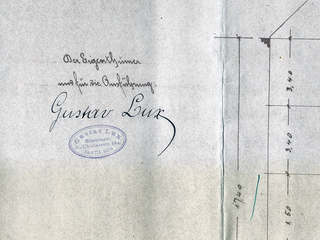 Der Eigenthümer
und für die Ausführung:
Gustav Lux
Gustav Lux
3,40
3,40
17,40
1,50